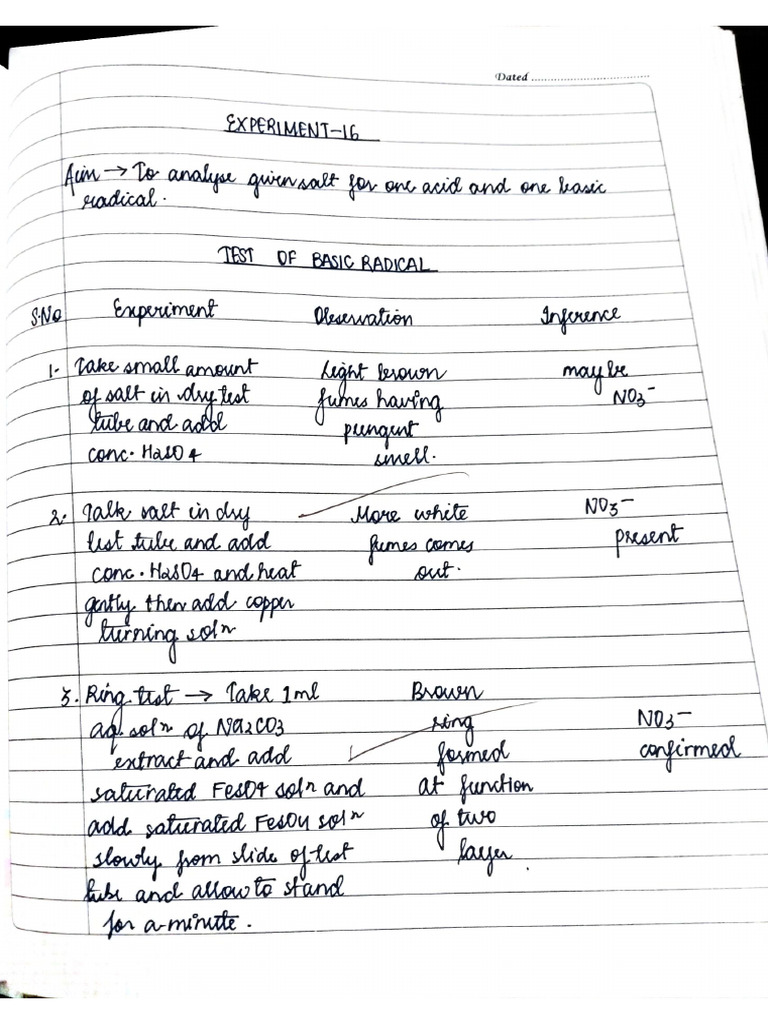 Dated
EXPERIMENT-16
Aim → To analyse given salt for one acid and one basic
radical.
TEST OF BASIC RADICAL
S.No Experiment Observation Inference
1. Take small amount Light brown may be
of salt in dry test fumes having NO3-
tube and add pungent
conc. H2SO4 smell.
2. Talk salt in dry More white NO3-
test tube and add fumes comes present
conc. H2SO4 and heat out.
gently then add copper
turning solⁿ
3. Ring test → Take 1ml Brown
aq. solⁿ of Na2CO3 ring NO3-
extract and add formed confirmed
saturated FeSO4 solⁿ and at function
add saturated FeSO4 solⁿ of two
slowly from slide of test layer.
tube and allow to stand
for a-minute.